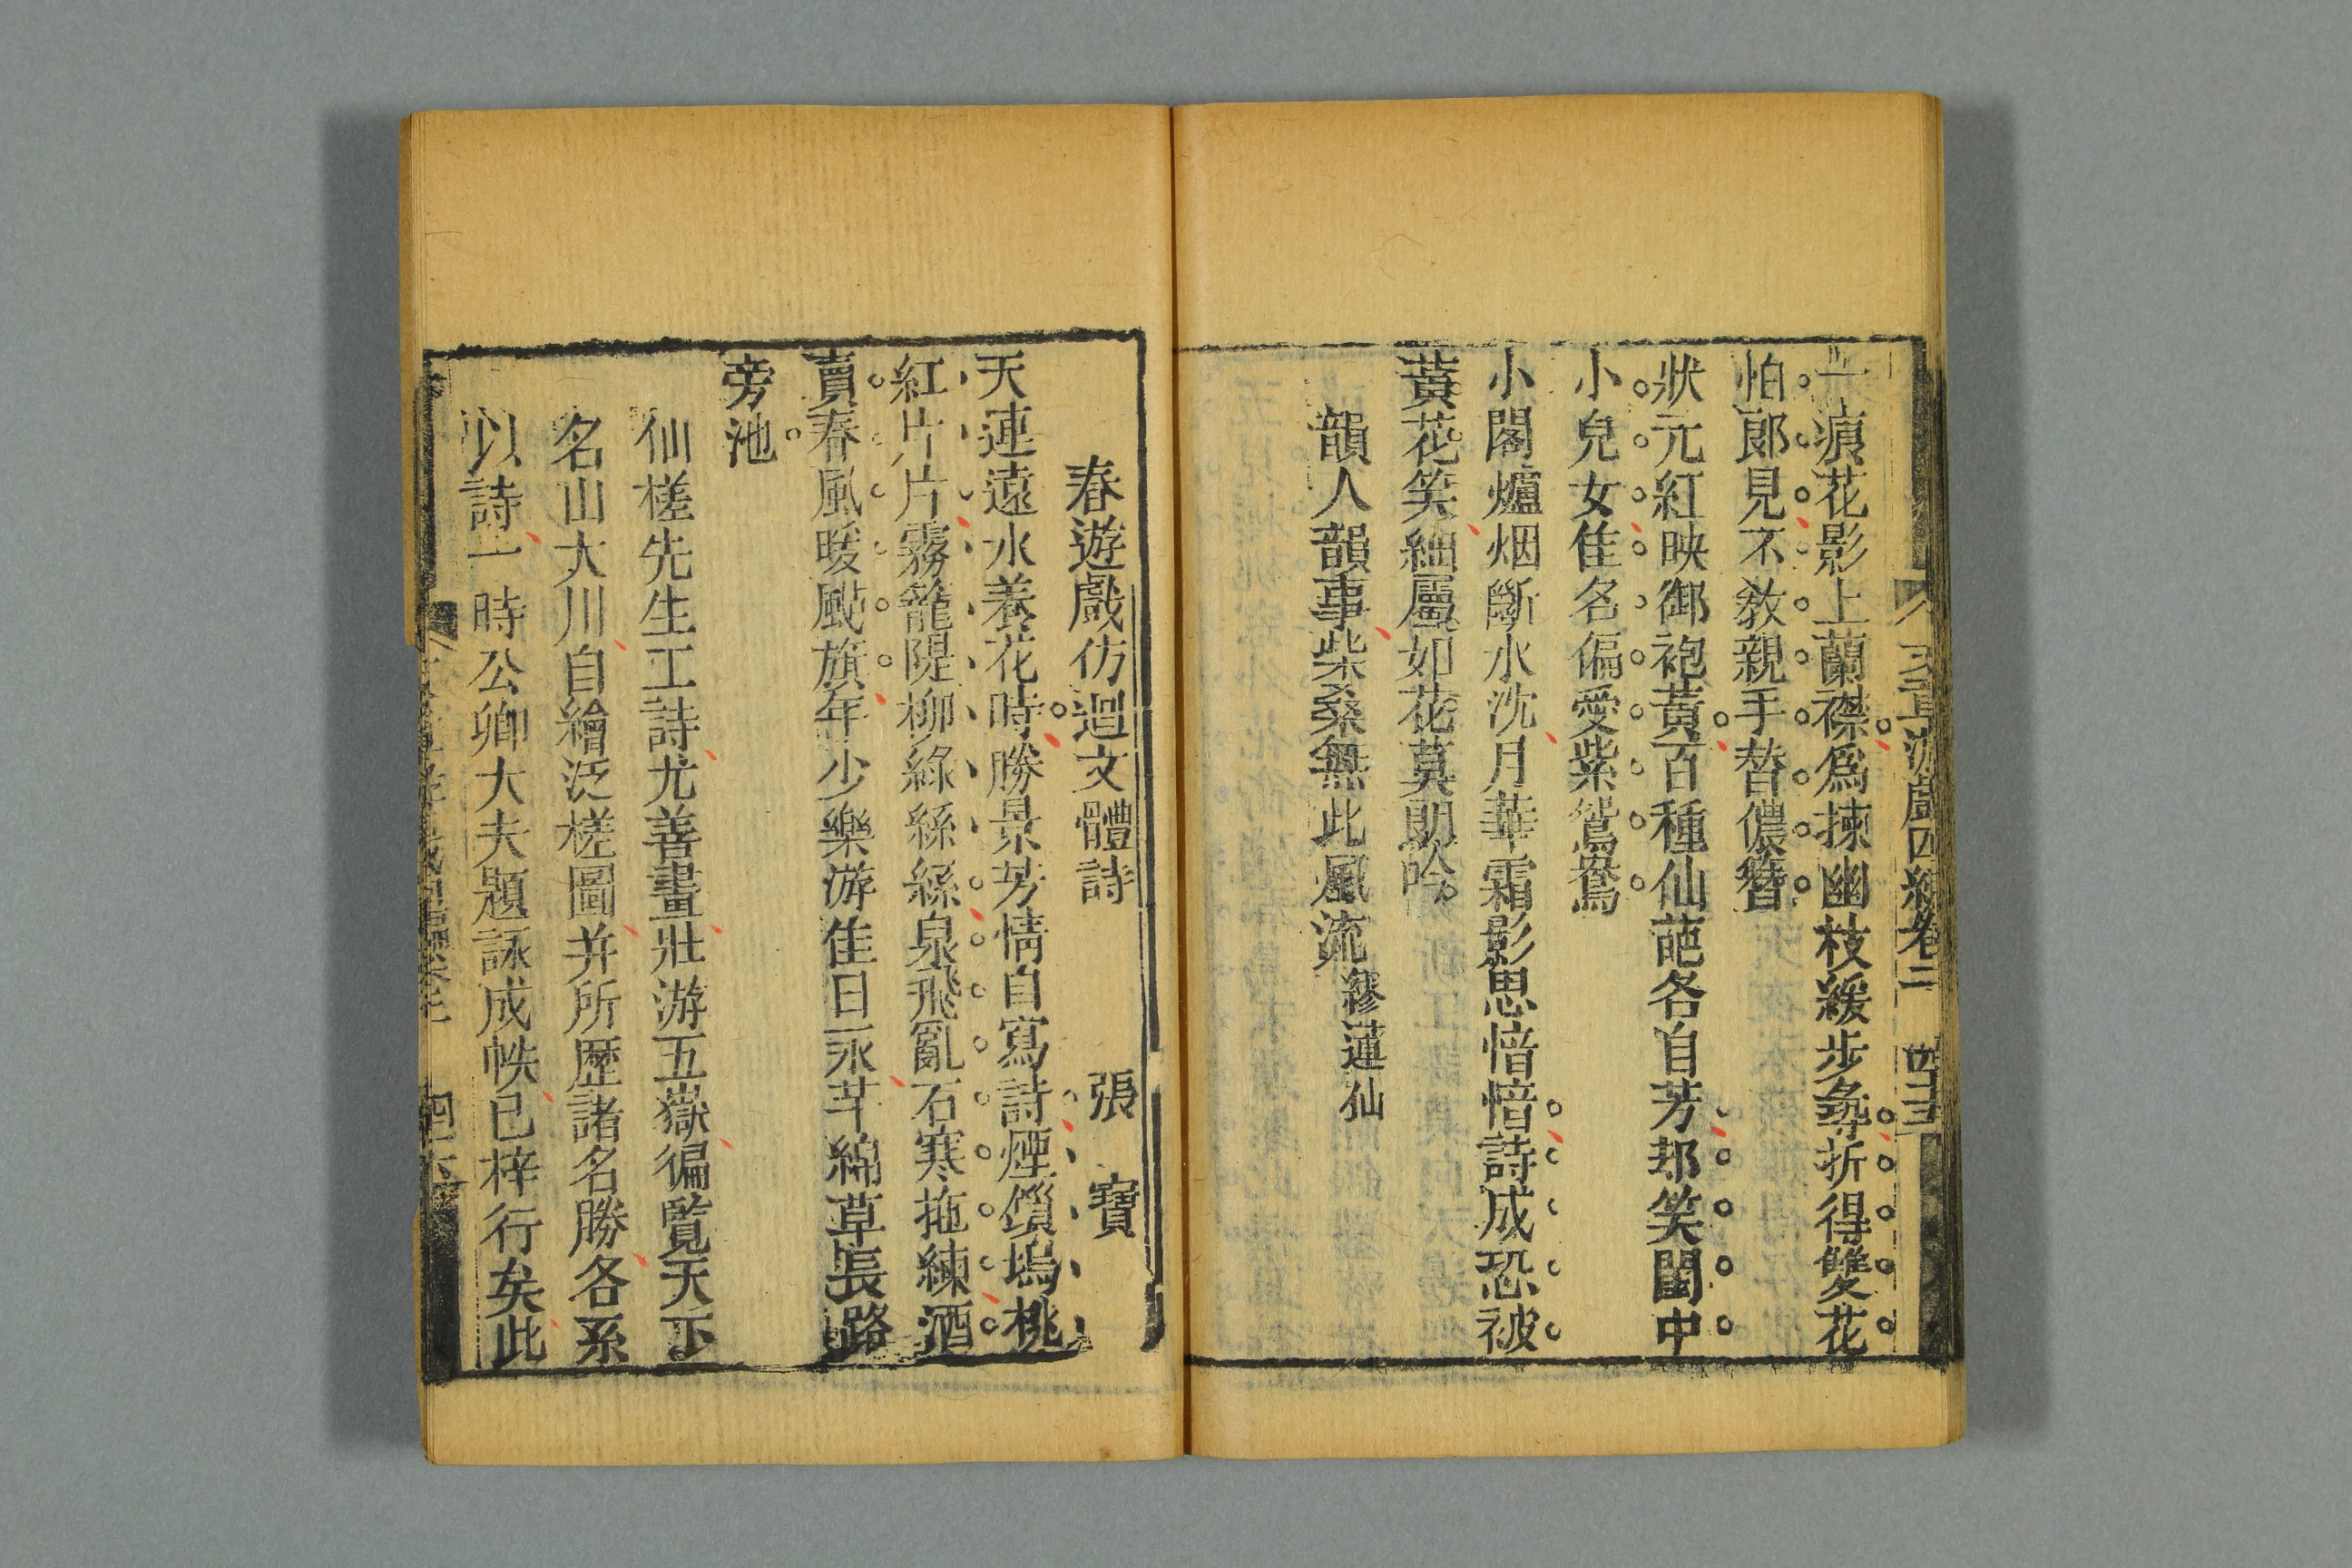 一痕花影上蘭襟爲揀幽枝緩步尋折得雙花
怕郎見不敎親手替儂簪
狀元紅映御袍黃百種仙葩各自芳却笑閨中
小兒女隹名偏愛紫鴛鴦
小閣爐烟斷水沈月華霜影思愔愔詩成恐被
黃花笑細屬如花莫朗吟
韻人韻事柴桑無此風流繆蓮仙
春遊戲仿迴文體詩 張 寶
天連遠水養花時勝景芳情自寫詩煙鎖塢桃
紅片片霧籠隄柳綠絲絲泉飛亂石寒拖練酒
賣春風暖颭旂年少樂游佳日永芊綿草長路
旁池
仙槎先生工詩尤善畫壯游五嶽徧覽天下
名山大川自繪泛槎圖并所歷諸名勝各系
以詩一時公卿大夫題詠成帙已梓行矣此